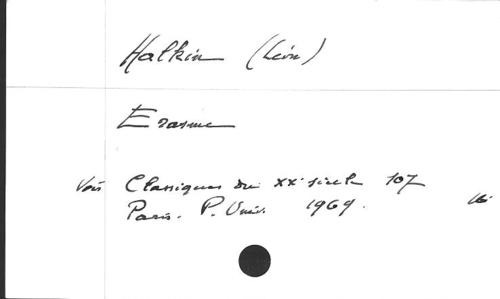 Halkin (Léon)
Erasme
Voir Classiques du XXe siècle 107
Paris. P. Univ. 1969.